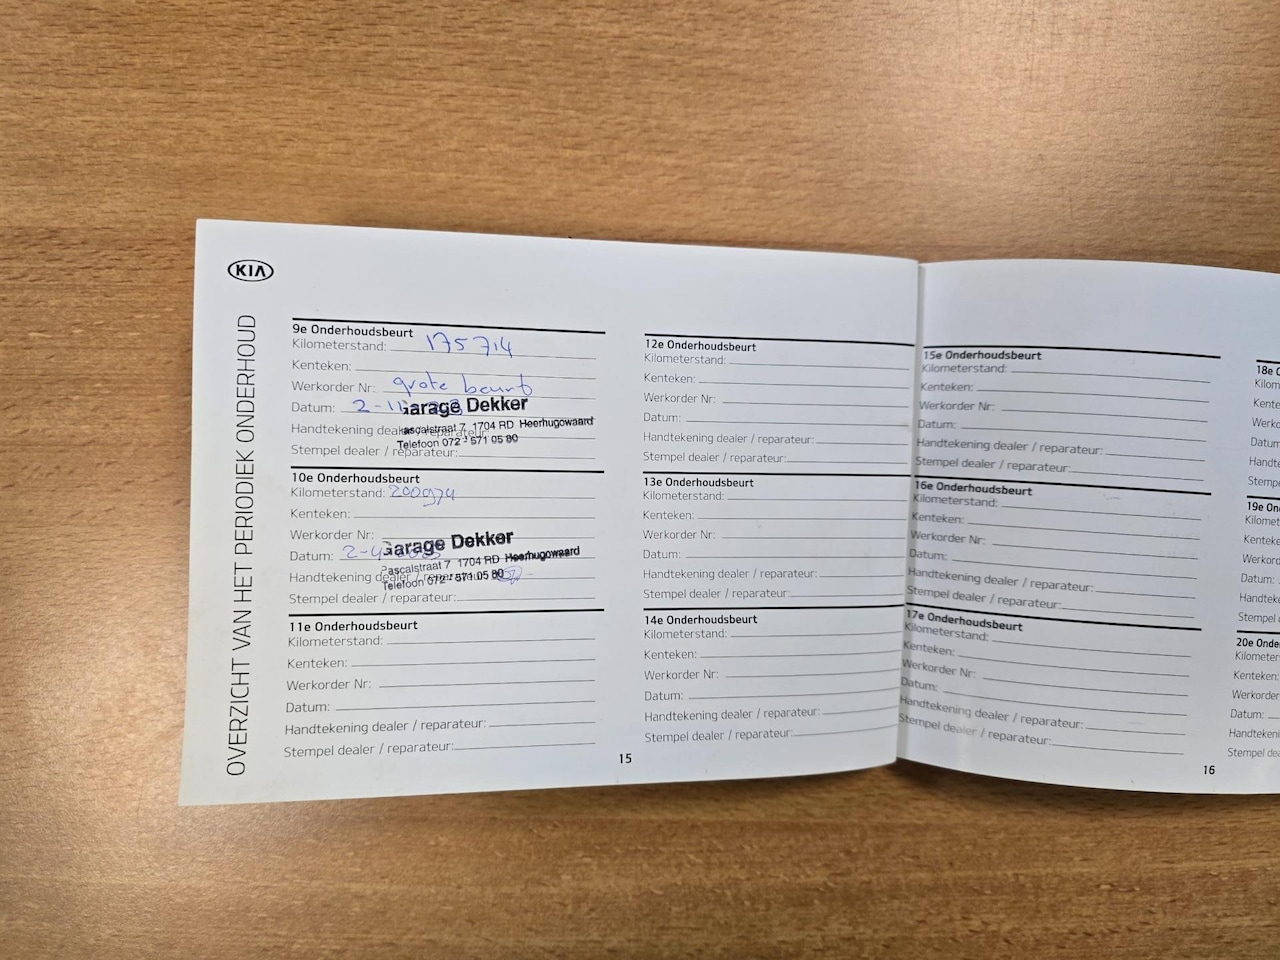 KIA
OVERZICHT VAN HET PERIODIEK ONDERHOUD
9e Onderhoudsbeurt
Kilometerstand: 175714
Kenteken:
Werkorder Nr: grote beurt
Datum: 2-11-
Garage Dekker
Pascalstraat 7 1704 RD Heerhugowaard
Telefoon 072 - 571 05 80
Handtekening dealer / reparateur:
Stempel dealer / reparateur:
10e Onderhoudsbeurt
Kilometerstand: 200974
Kenteken:
Werkorder Nr:
Datum: 2-4-
Garage Dekker
Pascalstraat 7 1704 RD Heerhugowaard
Telefoon 072 - 571 05 80
Handtekening dealer / reparateur:
Stempel dealer / reparateur:
11e Onderhoudsbeurt
Kilometerstand:
Kenteken:
Werkorder Nr:
Datum:
Handtekening dealer / reparateur:
Stempel dealer / reparateur:
12e Onderhoudsbeurt
Kilometerstand:
Kenteken:
Werkorder Nr:
Datum:
Handtekening dealer / reparateur:
Stempel dealer / reparateur:
13e Onderhoudsbeurt
Kilometerstand:
Kenteken:
Werkorder Nr:
Datum:
Handtekening dealer / reparateur:
Stempel dealer / reparateur:
14e Onderhoudsbeurt
Kilometerstand:
Kenteken:
Werkorder Nr:
Datum:
Handtekening dealer / reparateur:
Stempel dealer / reparateur:
15
15e Onderhoudsbeurt
Kilometerstand:
Kenteken:
Werkorder Nr:
Datum:
Handtekening dealer / reparateur:
Stempel dealer / reparateur:
16e Onderhoudsbeurt
Kilometerstand:
Kenteken:
Werkorder Nr:
Datum:
Handtekening dealer / reparateur:
Stempel dealer / reparateur:
17e Onderhoudsbeurt
Kilometerstand:
Kenteken:
Werkorder Nr:
Datum:
Handtekening dealer / reparateur:
Stempel dealer / reparateur:
16
18e O
Kilom
Kente
Werko
Datum
Handte
Stempe
19e On
Kilomet
Kenteke
Werkord
Datum:
Handteke
Stempel d
20e Onde
Kilometer
Kenteken:
Werkorder
Datum:
Handteken
Stempel dea